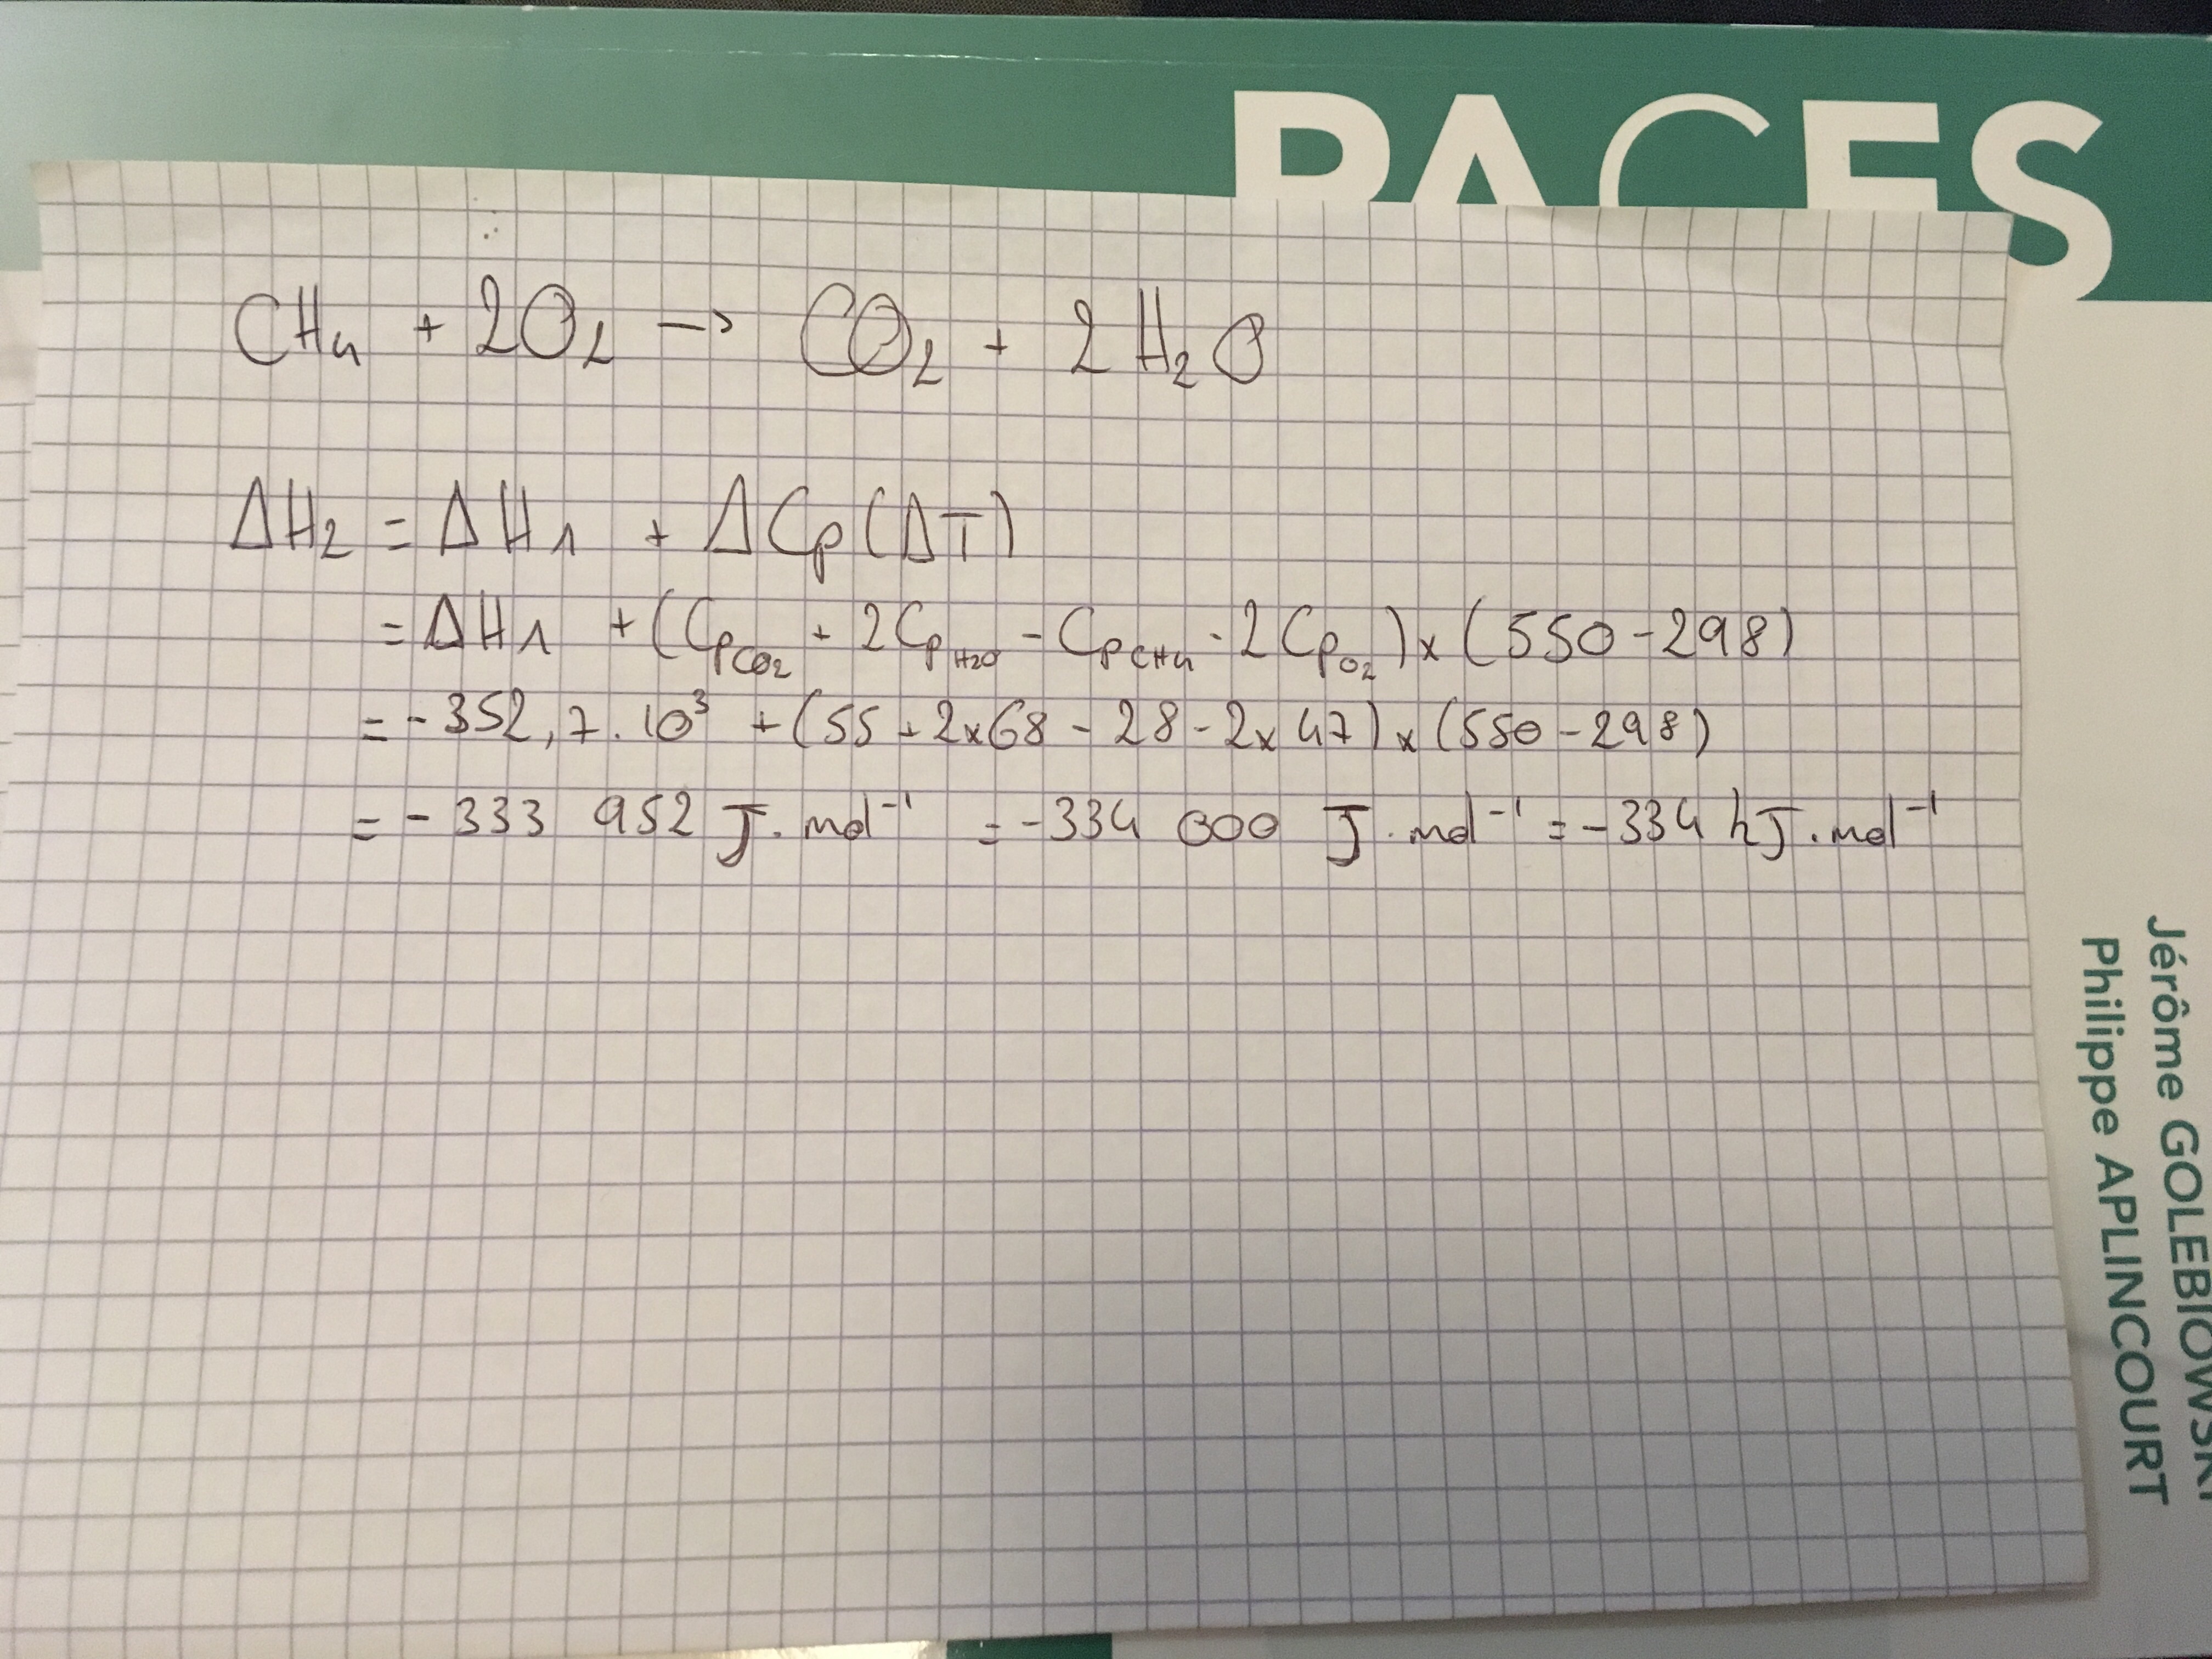 PACES
CH₄ + 2O₂ → CO₂ + 2 H₂O
ΔH₂ = ΔH1 + ΔCp(ΔT)
= ΔH1 + (Cp CO₂ + 2Cp H₂O - Cp CH₄ - 2Cp O₂) x (550 - 298)
= - 352,7. 10³ + (55 + 2x68 - 28 - 2x 47) x (550 - 298)
= - 333 952 J. mol⁻¹ = - 334 000 J. mol⁻¹ = - 334 kJ. mol⁻¹
Jérôme GOLEBIOWSKI
Philippe APLINCOURT